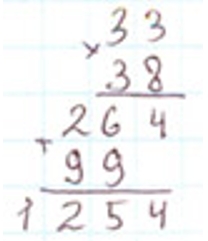 33
× 38
264
+ 99
1254